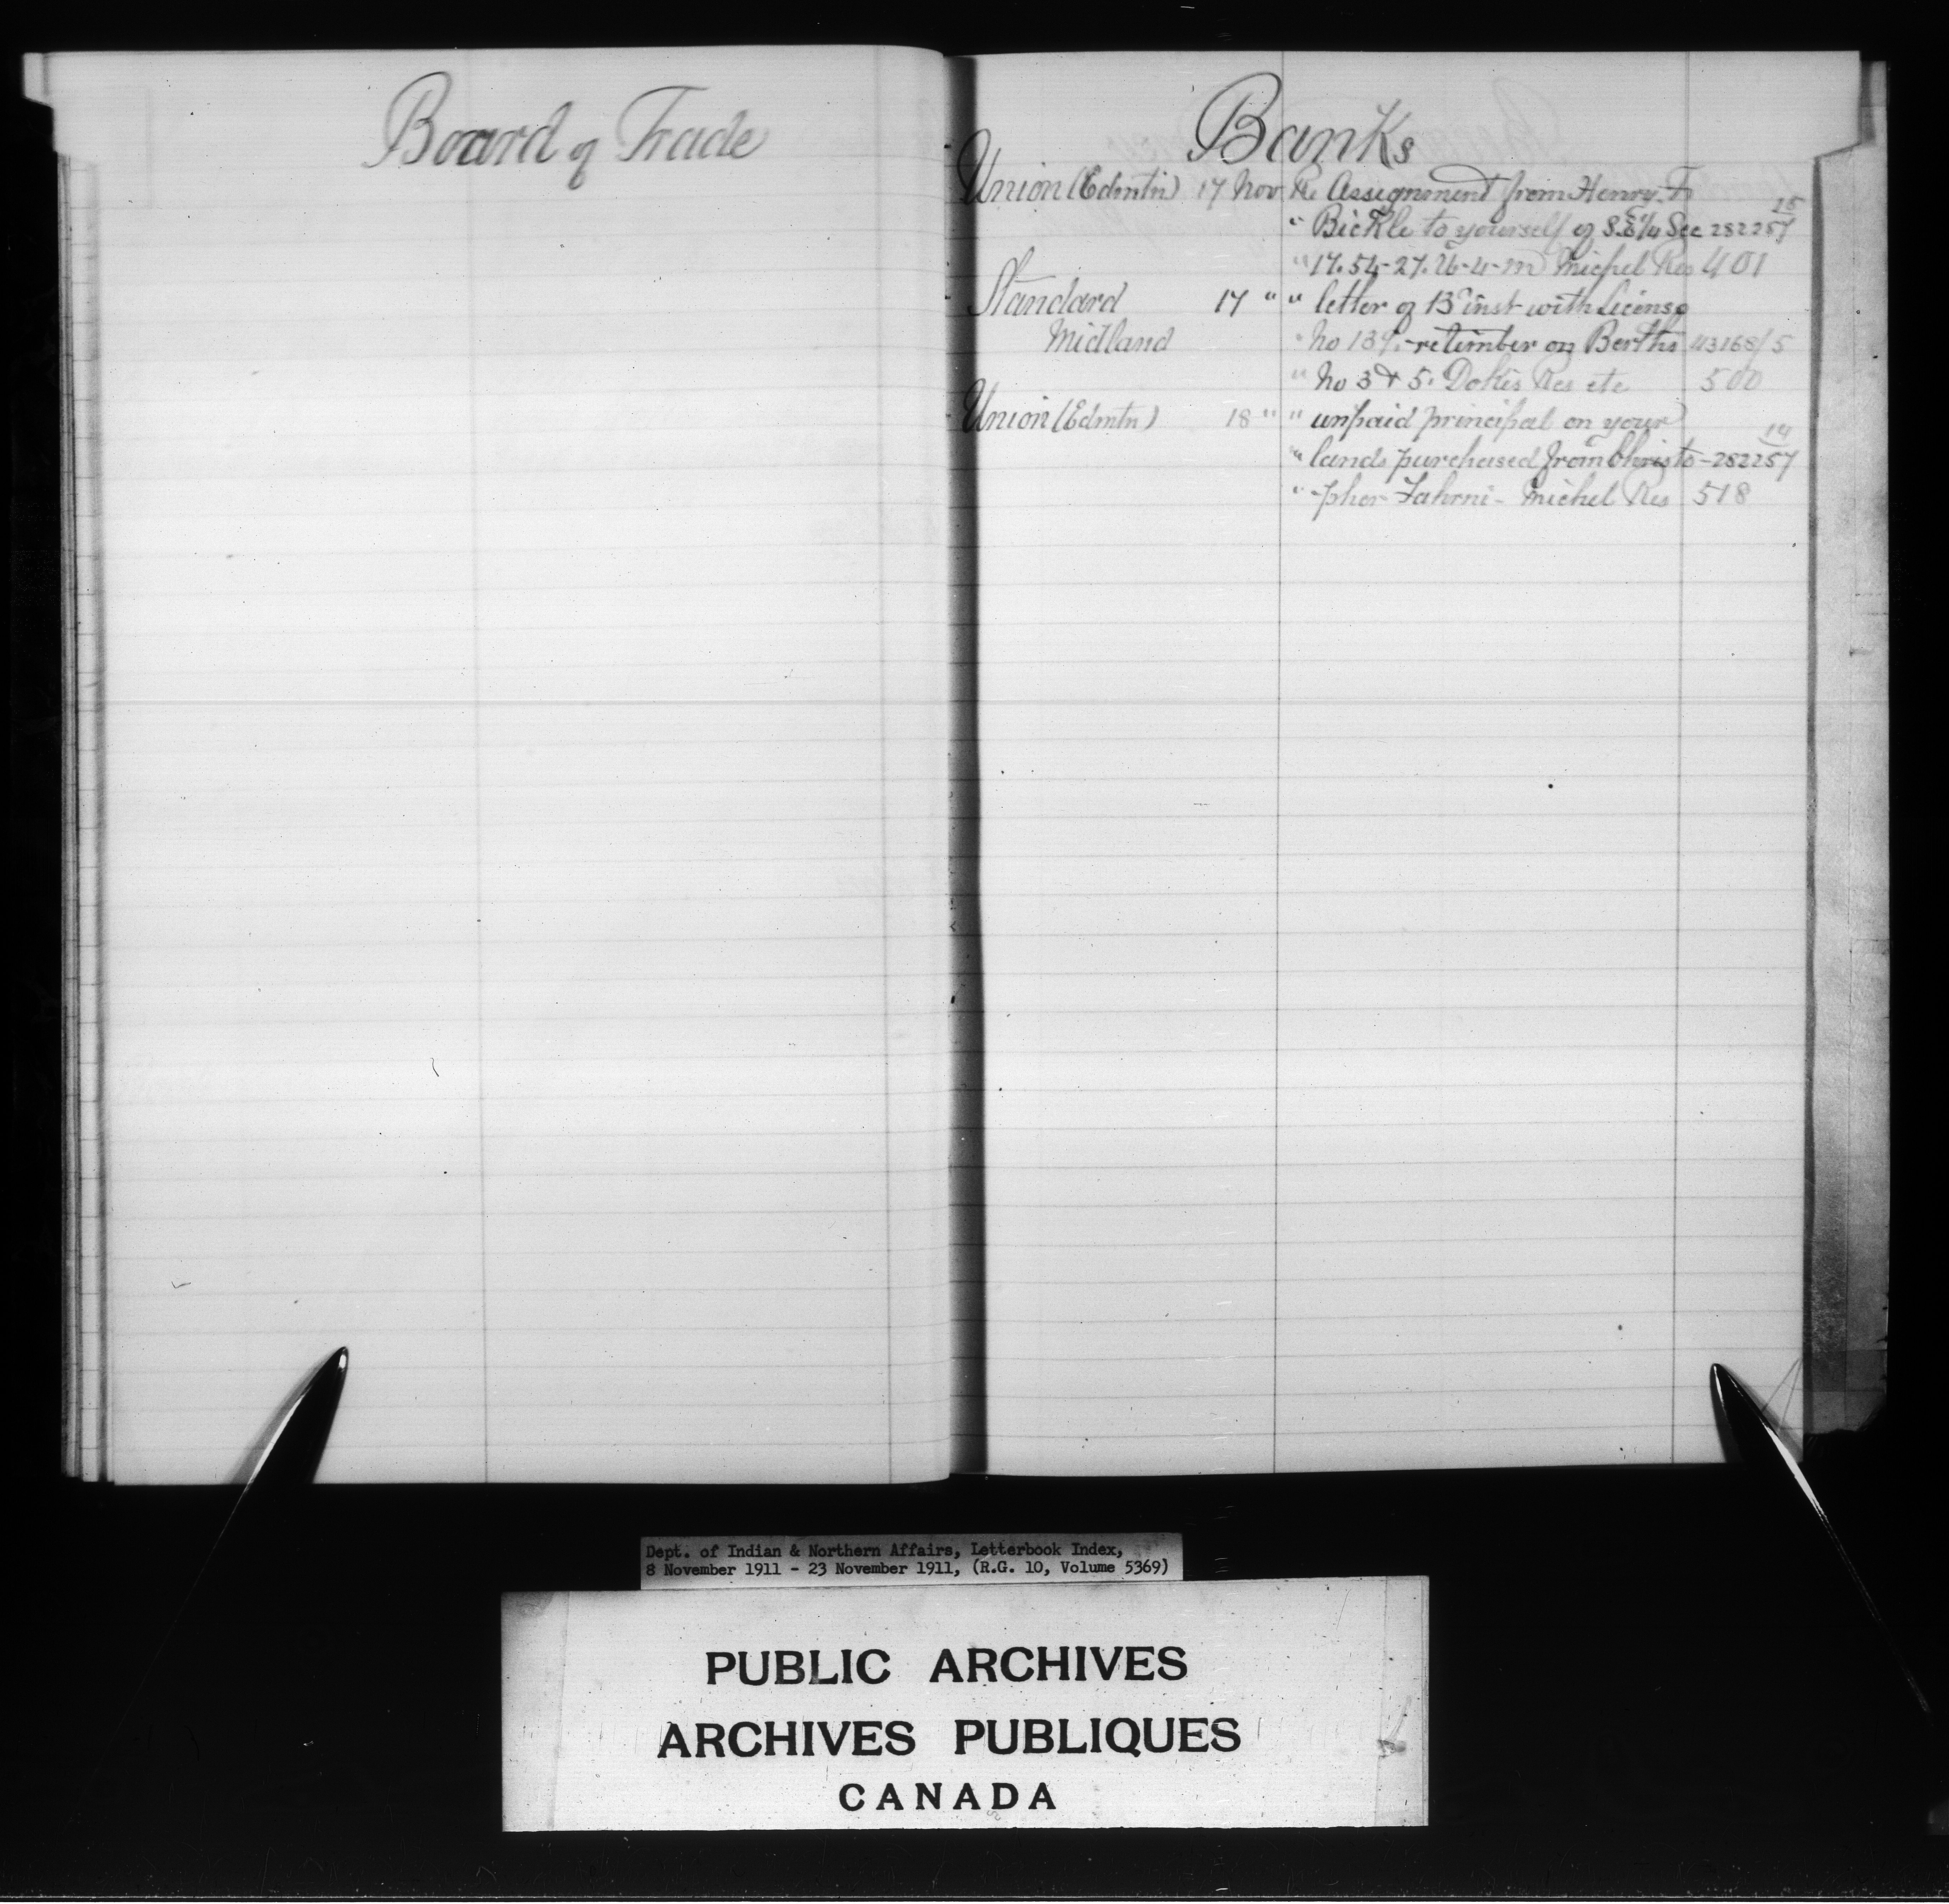 Board of Trade
Banks
Union (Edmtn) 17 Nov Re Assignment from Henry F.
" Bickle to yourself of S.E 1/4 Sec 282257 15
" 17. 54-27. 26-4-m Michel Res 401
Standard 17 " " letter of 13th inst with License
Midland " No 139. re timber on Berths 43168/5
" No 3 & 5. Dokis Res etc 500
Union (Edmtn) 18 " " unpaid principal on your
" lands purchased from Christo - 282257 14
" -pher Fahrni - Michel Res 518
Dept. of Indian & Northern Affairs, Letterbook Index,
8 November 1911 - 23 November 1911, (R.G. 10, Volume 5369)
PUBLIC ARCHIVES
ARCHIVES PUBLIQUES
CANADA